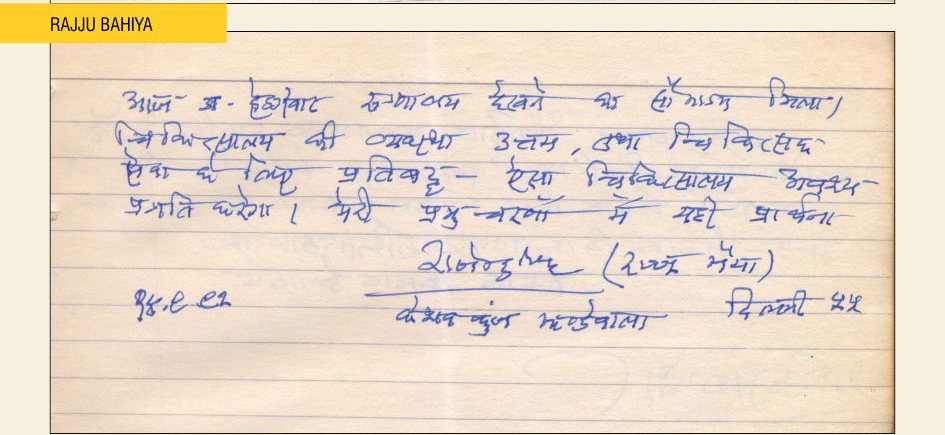 RAJJU BAHIYA
आज डा. हेडगेवार रुग्णालय देखने का सौभाग्य मिला।
चिकित्सालय की व्यवस्था उत्तम, तथा चिकित्सक
सेवा के लिए प्रतिबद्ध - ऐसा चिकित्सालय अवश्य
प्रगति करेगा। मेरी प्रभु चरणों में यही प्रार्थना
राजेन्द्र सिंह (रज्जू भैया)
केशव कुंज झण्डेवाला दिल्ली ५५